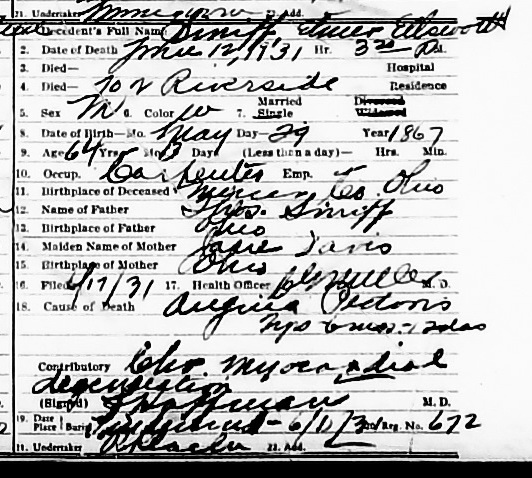 21. Undertaker 22. Add.
Decedent's Full Name Sinriff, Elmer Ellsworth
2. Date of Death June 12, 1931 Hr. 3 30 P M.
3. Died— Hospital
4. Died— 702 Riverside Residence
5. Sex M 6. Color W 7. Married Single Divorced Widowed
8. Date of Birth—Mo. May Day—29 Year 1867
9. Age 64 Yrs. Mo. 13 Days (Less than a day)— Hrs. Min.
10. Occup. Carpenter Emp. —
11. Birthplace of Deceased Mercer Co. Ohio
12. Name of Father Thos. Sinriff
13. Birthplace of Father Ohio
14. Maiden Name of Mother Davis
15. Birthplace of Mother Ohio
16. Filed 6/17/31 17. Health Officer M. D.
18. Cause of Death Angina Pectoris
Contributory Chr. Myocardial
degeneration
(Signed) Hoffman M. D.
19. Date Place Burial 20. Reg. No. 672
21. Undertaker 22. Add.